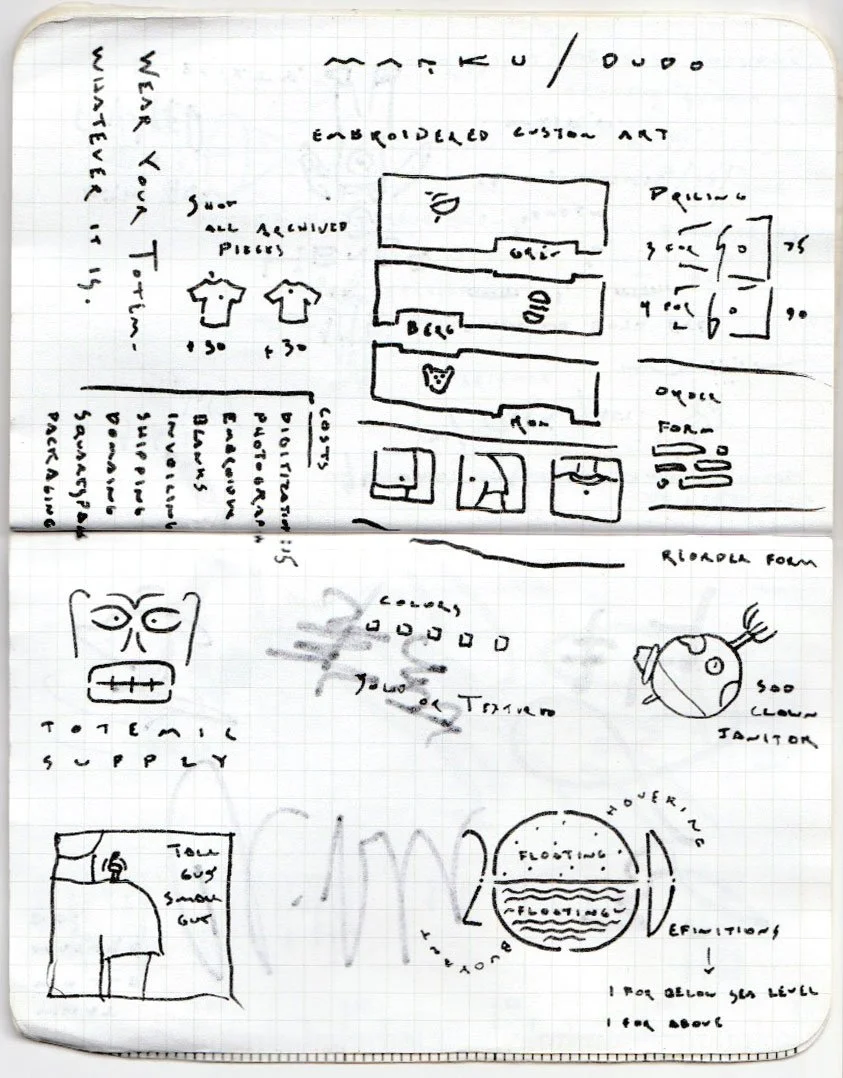 MARKU / DUDO
EMBROIDERED CUSTOM ART
WEAR YOUR TOTEM-
WHATEVER IT IS.
SHOW
ALL ARCHIVED
PIECES
+30
+30
BERG
PRICING
3 FOR
75
4 FOR
90
ORDER
FORM
COSTS
DIGITIZATION: 15
PHOTOGRAPH
BLANKS
INVOICING
SHIPPING
DOMAINS
PACKAGING
REORDER FORM
COLORS
SOLID OR TEXTURED
TOTEMIC
SUPPLY
SAD
CLOWN
JANITOR
TALL
GUY
SMALL
GUY
HOVERING
2
FLOATING
FLOATING
DEFINITIONS
BUOYANT
1 FOR BELOW SEA LEVEL
1 FOR ABOVE